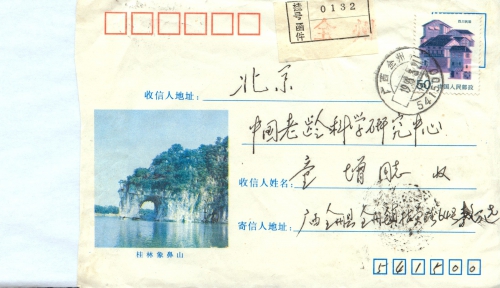 挂号函件
0132
全州
广西全州
541500
50分
中国人民邮政
收信人地址:
北京
中国老龄科学研究中心
收信人姓名:
童增同志 收
寄信人地址:
广西全州县全州镇
桂林象鼻山
541500